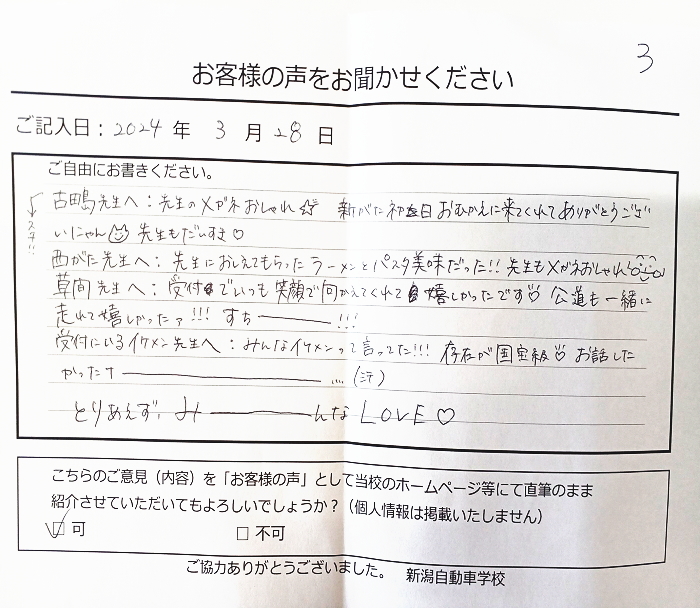 3
お客様の声をお聞かせください
ご記入日：2024 年 3 月 28 日
ご自由にお書きください。
古嶋先生へ：先生のメガネおしゃれ☆ 新がた初日おむかえに来てくれてありがとうござ
いにゃん 先生もだいすき♡
スキ!!
西がた先生へ：先生におしえてもらったラーメンとパスタ美味だった!! 先生もメガネおしゃれ
草間先生へ：受付でいつも笑顔で向かえてくれて嬉しかったです♡ 公道も一緒に
走れて嬉しかったァ!!! すち―――!!!
受付にいるイケメン先生へ：みんなイケメンって言ってた!!! 存在が国宝級♡ お話した
かったナ―――――――――......(汗)
とりあえず、み―――――んな LOVE♡
こちらのご意見（内容）を「お客様の声」として当校のホームページ等にて直筆のまま
紹介させていただいてもよろしいでしょうか？（個人情報は掲載いたしません）
☑ 可 □ 不可
ご協力ありがとうございました。 新潟自動車学校